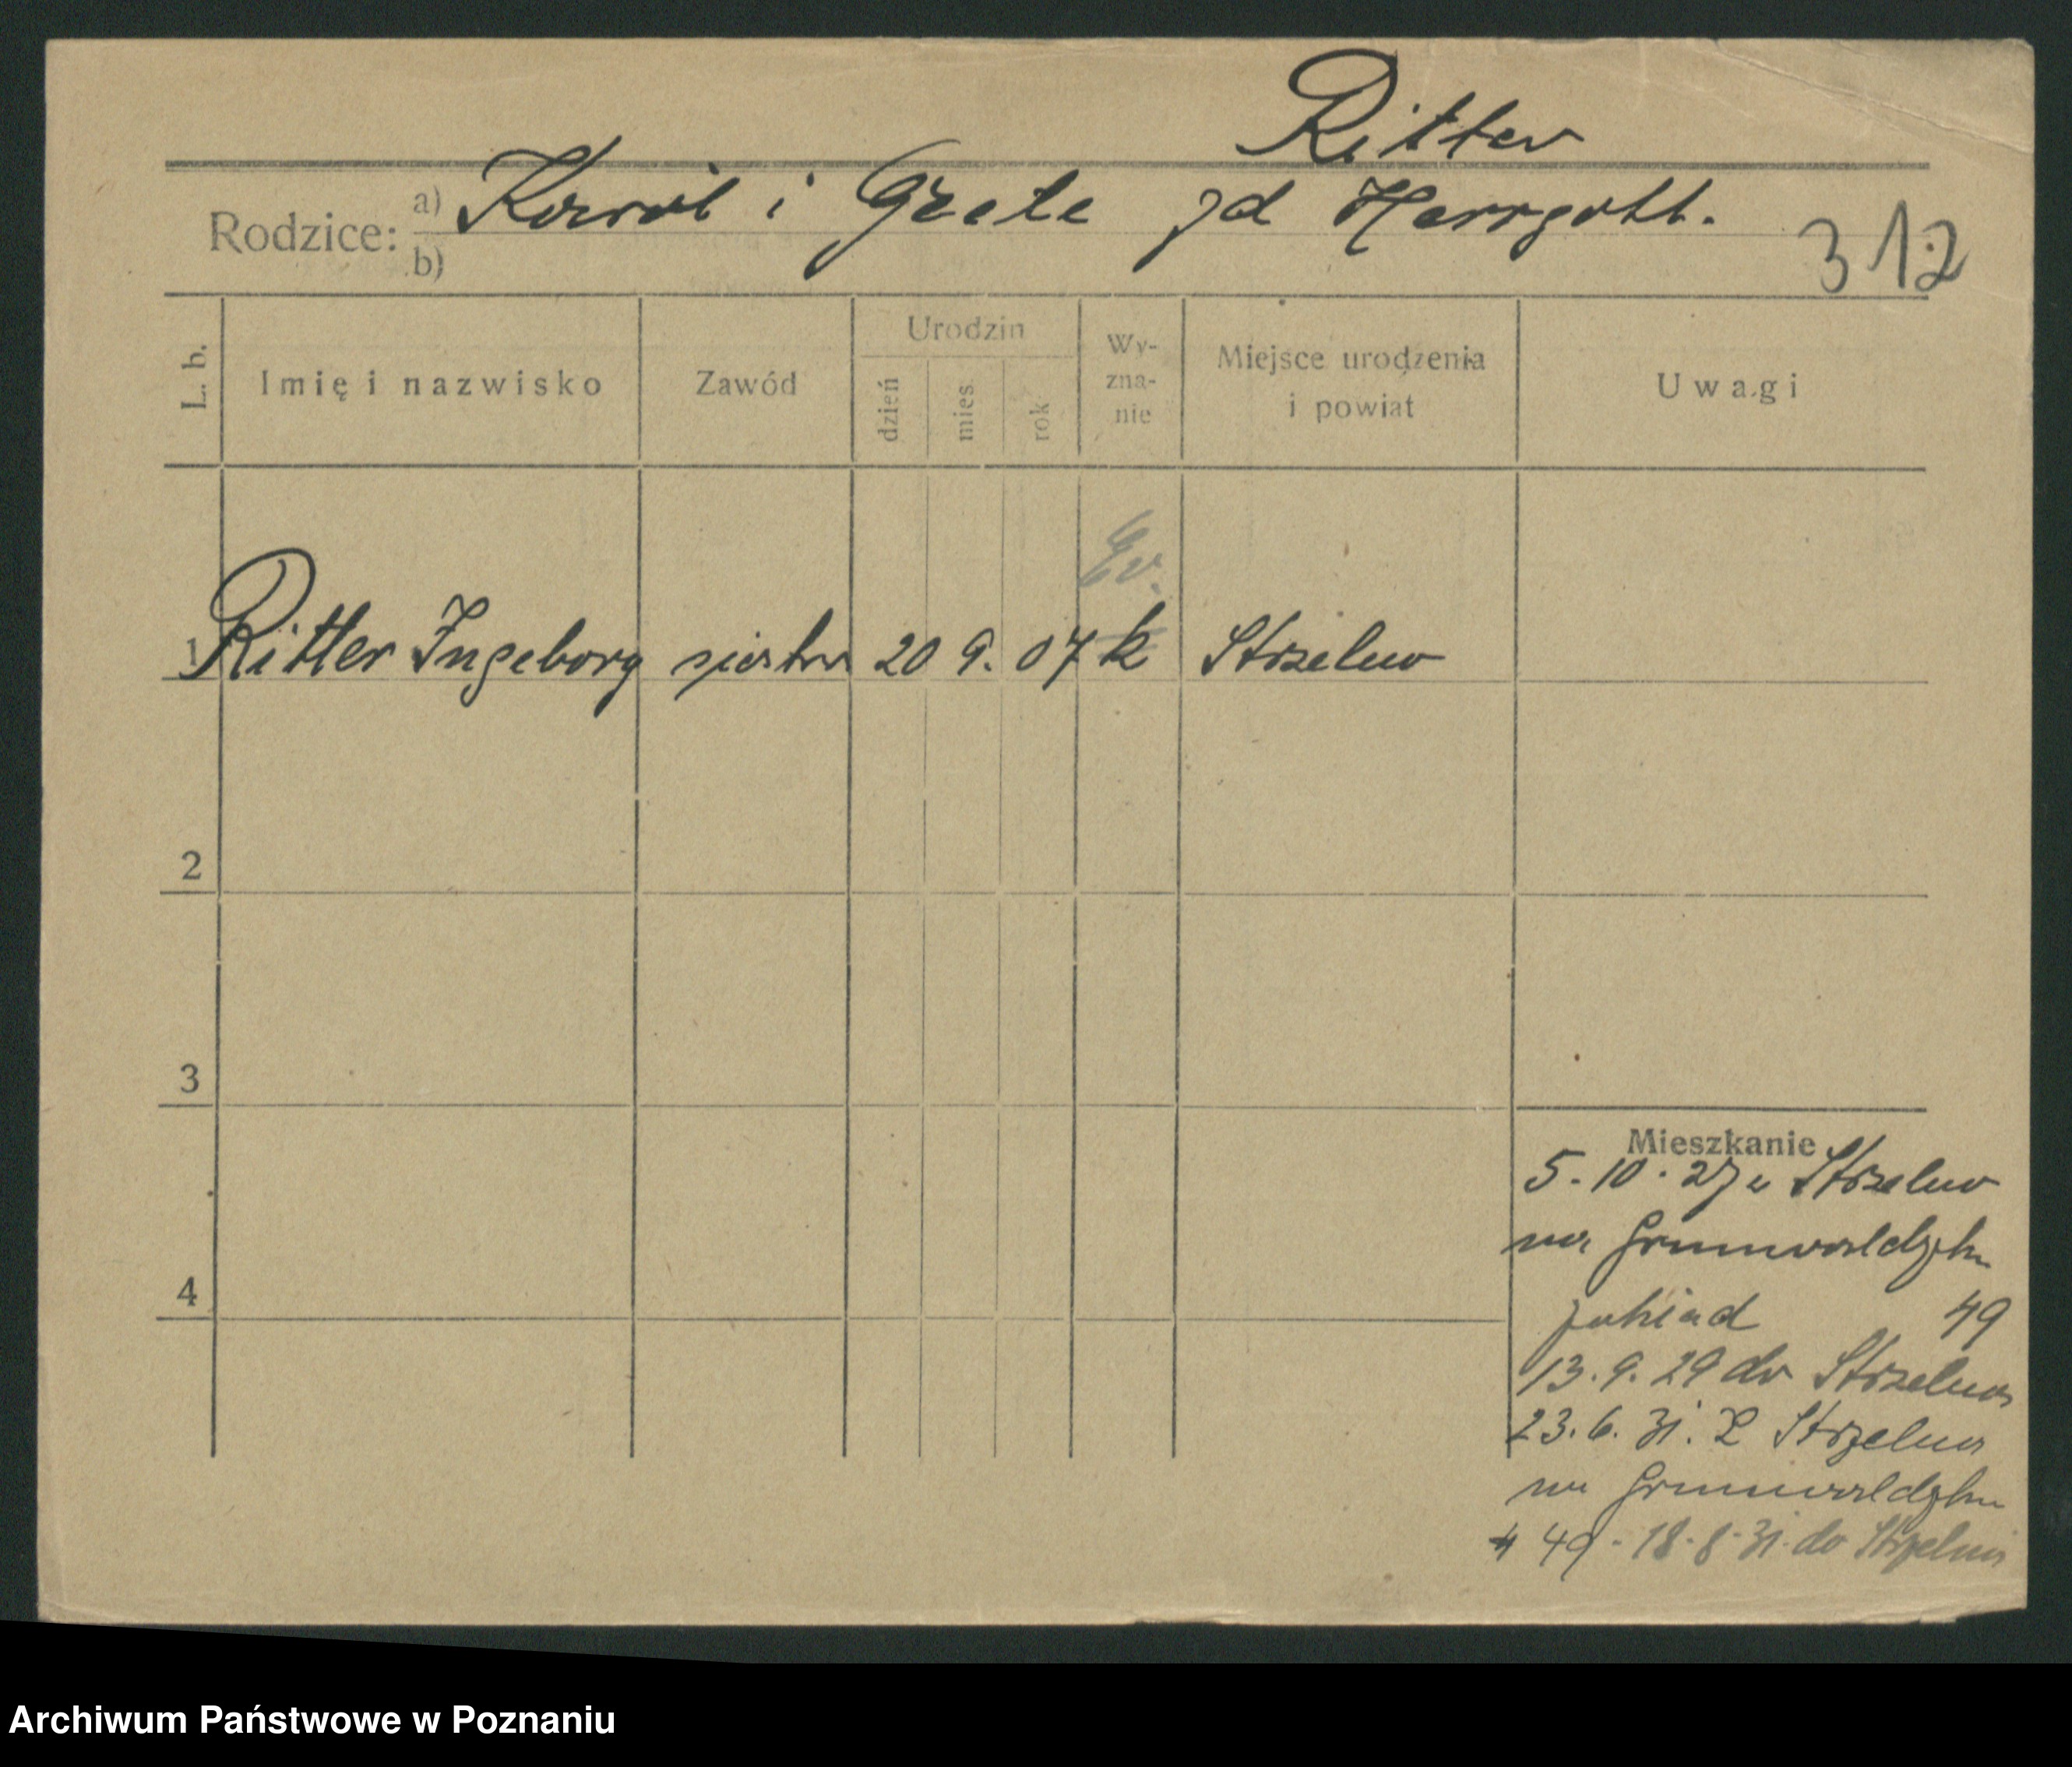 Ritter
Rodzice: a) Karol i Grete zd Herrgott.
b)
312
L. b. Imię i nazwisko Zawód Urodzin dzień mies. rok Wy-zna-nie Miejsce urodzenia i powiat Uwagi
Ev.
1 Ritter Ingeborg siostra 20 9. 07 k Strzelno
2
3
4
Mieszkanie
5. 10. 27 z Strzelno
na Grunwaldzka
49
13. 9. 29 do Strzelna
23. 6. 31. Z Strzelna
na Grunwaldzka
49 - 18-8-31 do Strzelna
Archiwum Państwowe w Poznaniu